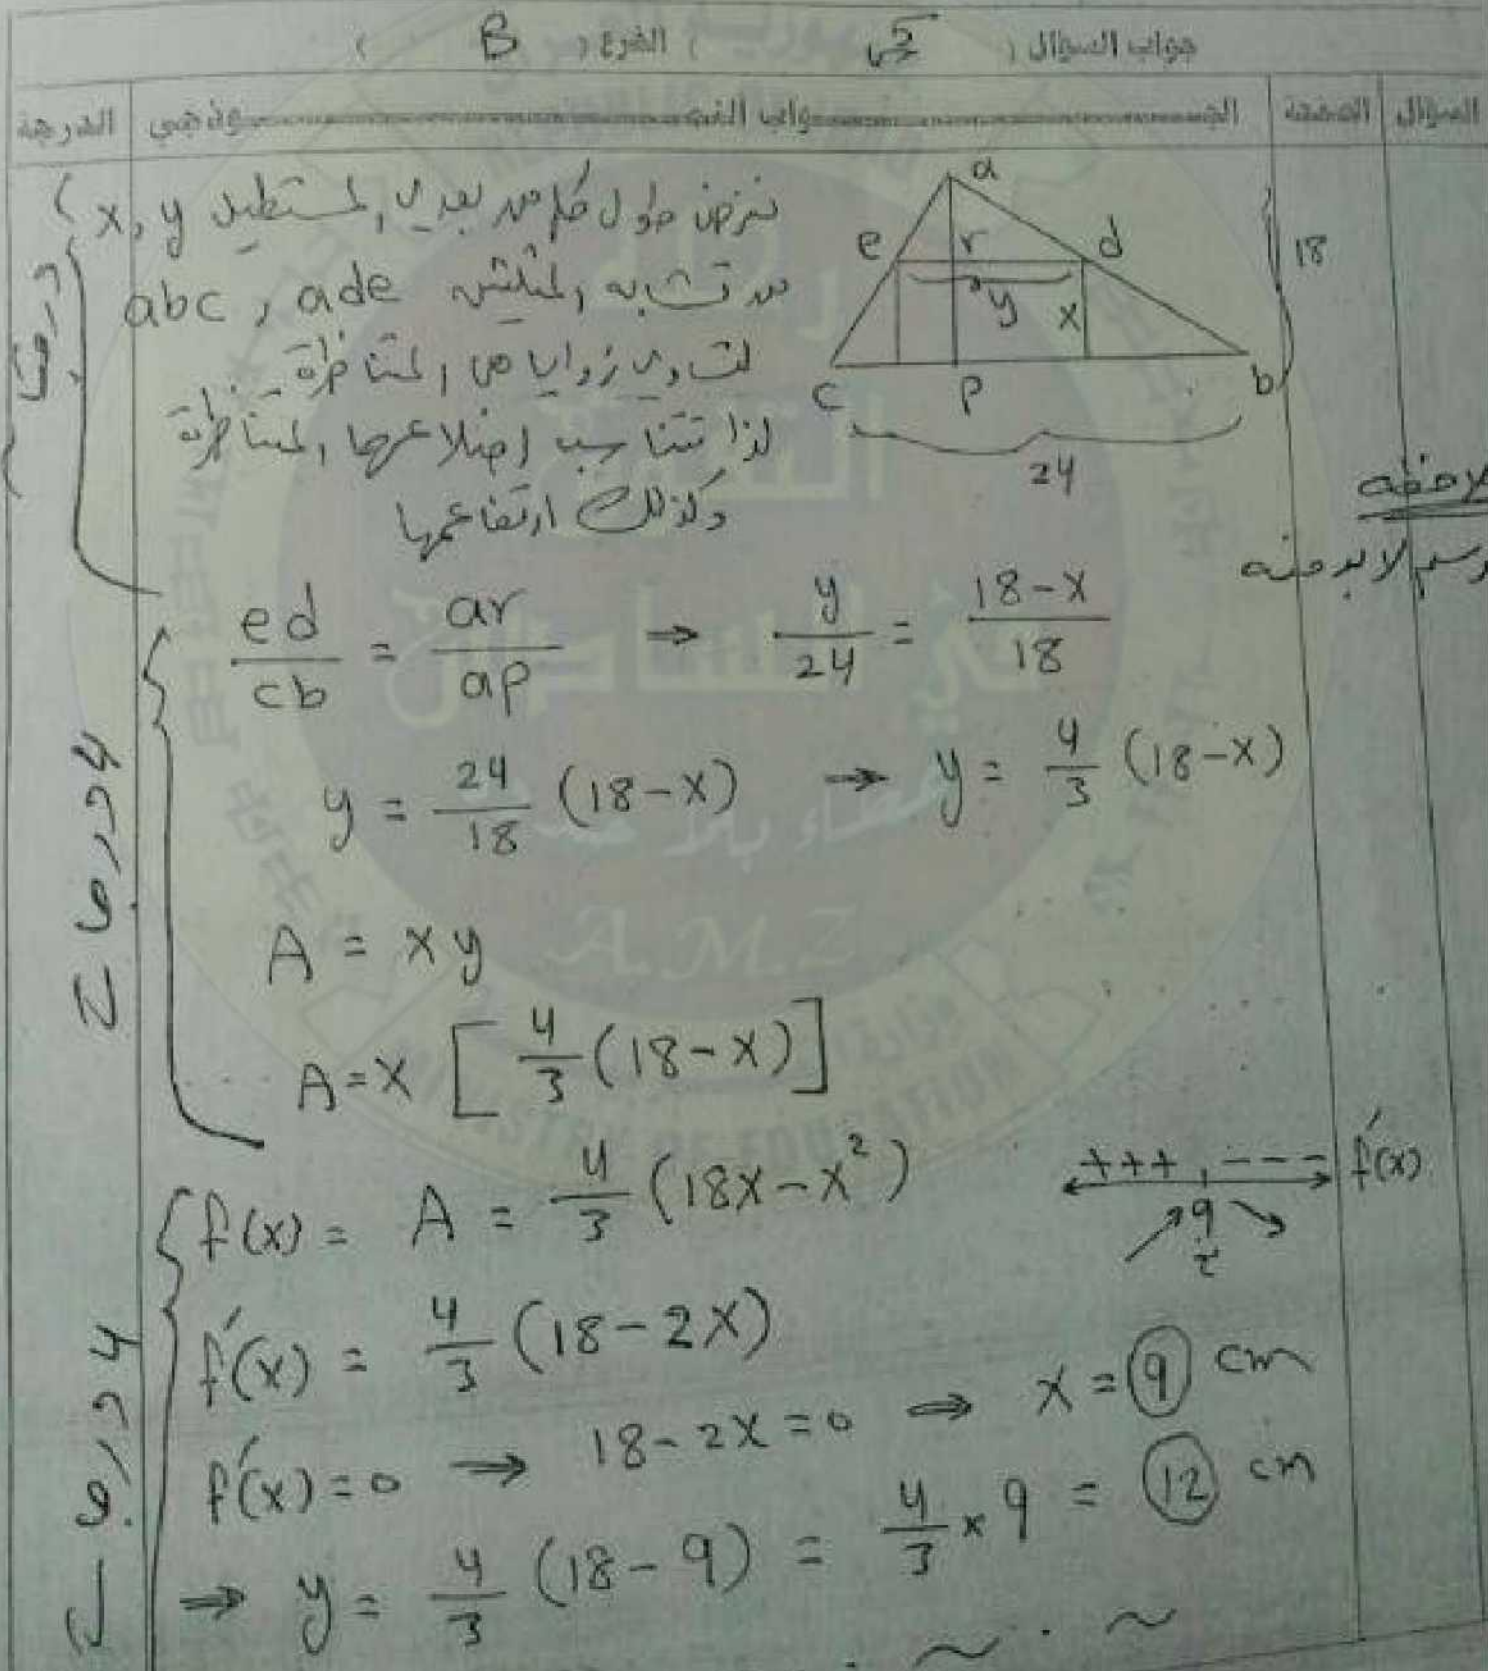 جواب السؤال ( س5 ) الفرع ( B )
السؤال الصفحة الجــواب النمــوذجي الدرجة
نفرض طول كل من بعدي المستطيل x, y
من تشابه المثلثين abc, ade
لتساوي زواياهما المتناظرة
لذا تتناسب اضلاعهما المتناظرة
وكذلك ارتفاعهما
a
e r d
y x
c p b
18
24
ملاحظة
الرسم لا بد منه
ed/cb = ar/ap → y/24 = (18-x)/18
y = 24/18 (18-x) → y = 4/3 (18-x)
A = xy
A = x [4/3 (18-x)]
f(x) = A = 4/3 (18x-x²)
+++ --- f′(x)
9
f′(x) = 4/3 (18-2x)
f′(x)=0 → 18-2x=0 → x = 9 cm
⇒ y = 4/3 (18-9) = 4/3 × 9 = 12 cm
4 درجات
4 درجات
A.M.Z
MINISTRY OF EDUCATION